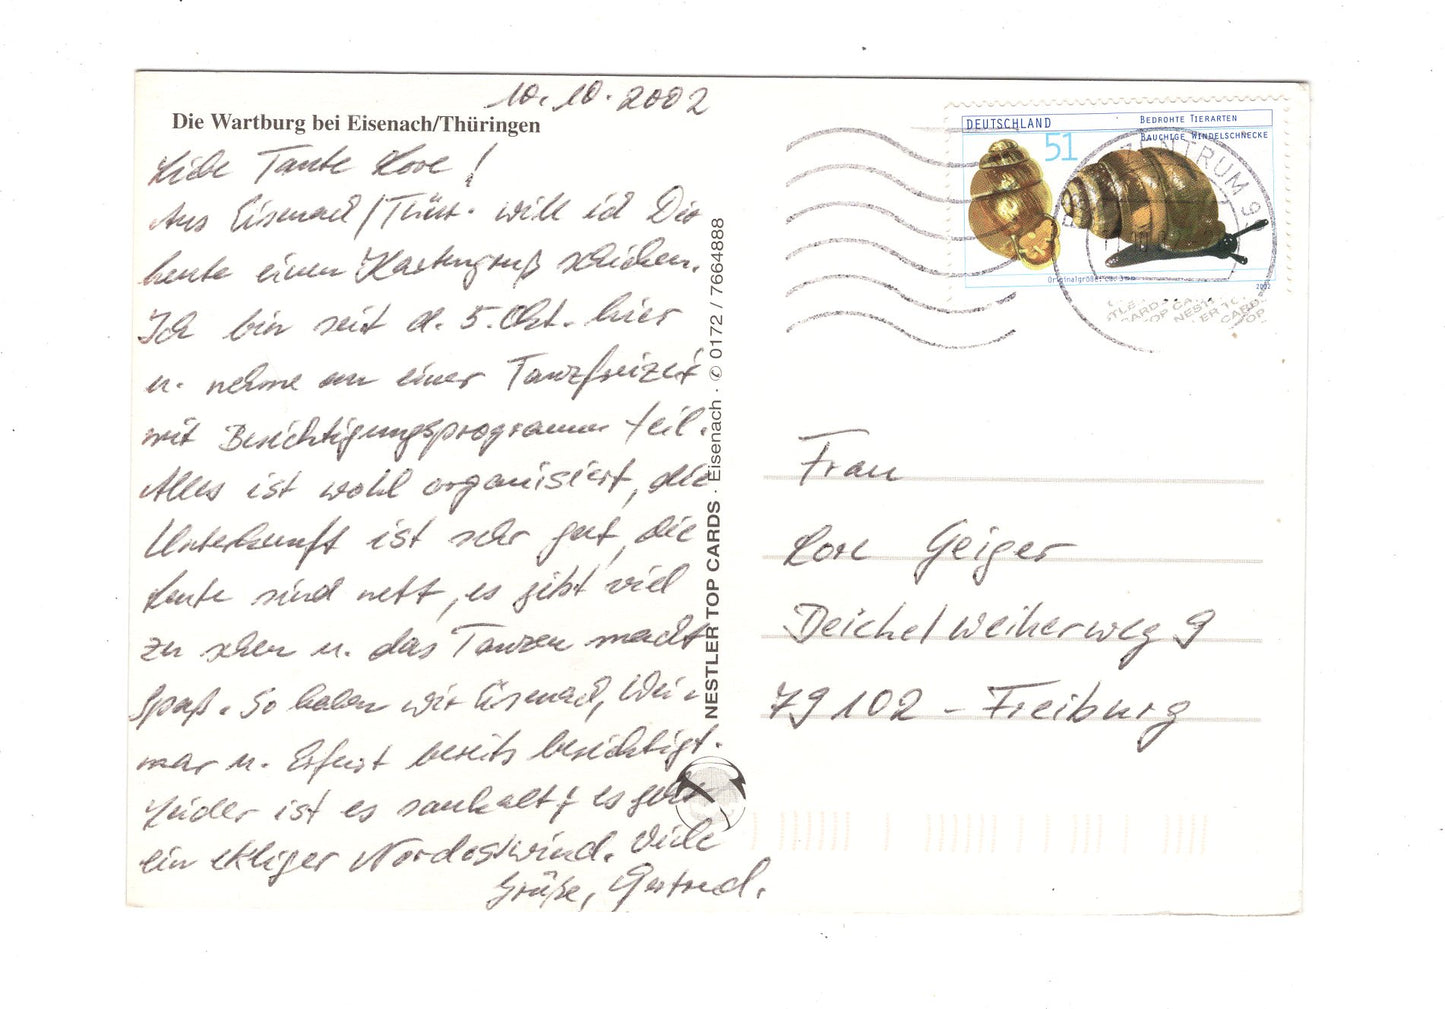 10.10.2002
Die Wartburg bei Eisenach/Thüringen
Liebe Tante Lore!
Aus Eisenach/Thür. will ich Dir
heute einen Kartengruß schicken.
Ich bin seit d. 5. Okt. hier
u. nehme an einer Tanzfreizeit
mit Besichtigungsprogramm teil.
Alles ist wohl organisiert, die
Unterkunft ist sehr gut, die
Leute sind nett, es gibt viel
zu sehen u. das Tanzen macht
Spaß. So haben wir Eisenach, Wei-
mar u. Erfurt bereits besichtigt.
Leider ist es saukalt, es geht
ein ekliger Nordostwind. Viele
Grüße, Gertrud.
NESTLER TOP CARDS · Eisenach · ✆ 0172 / 7664888
DEUTSCHLAND
51
BEDROHTE TIERARTEN
BAUCHIGE WINDELSCHNECKE
Originalgröße: ca. 3 mm
2002
ZENTRUM 9
Frau
Lore Geiger
Deichelweiherweg 9
79102 - Freiburg